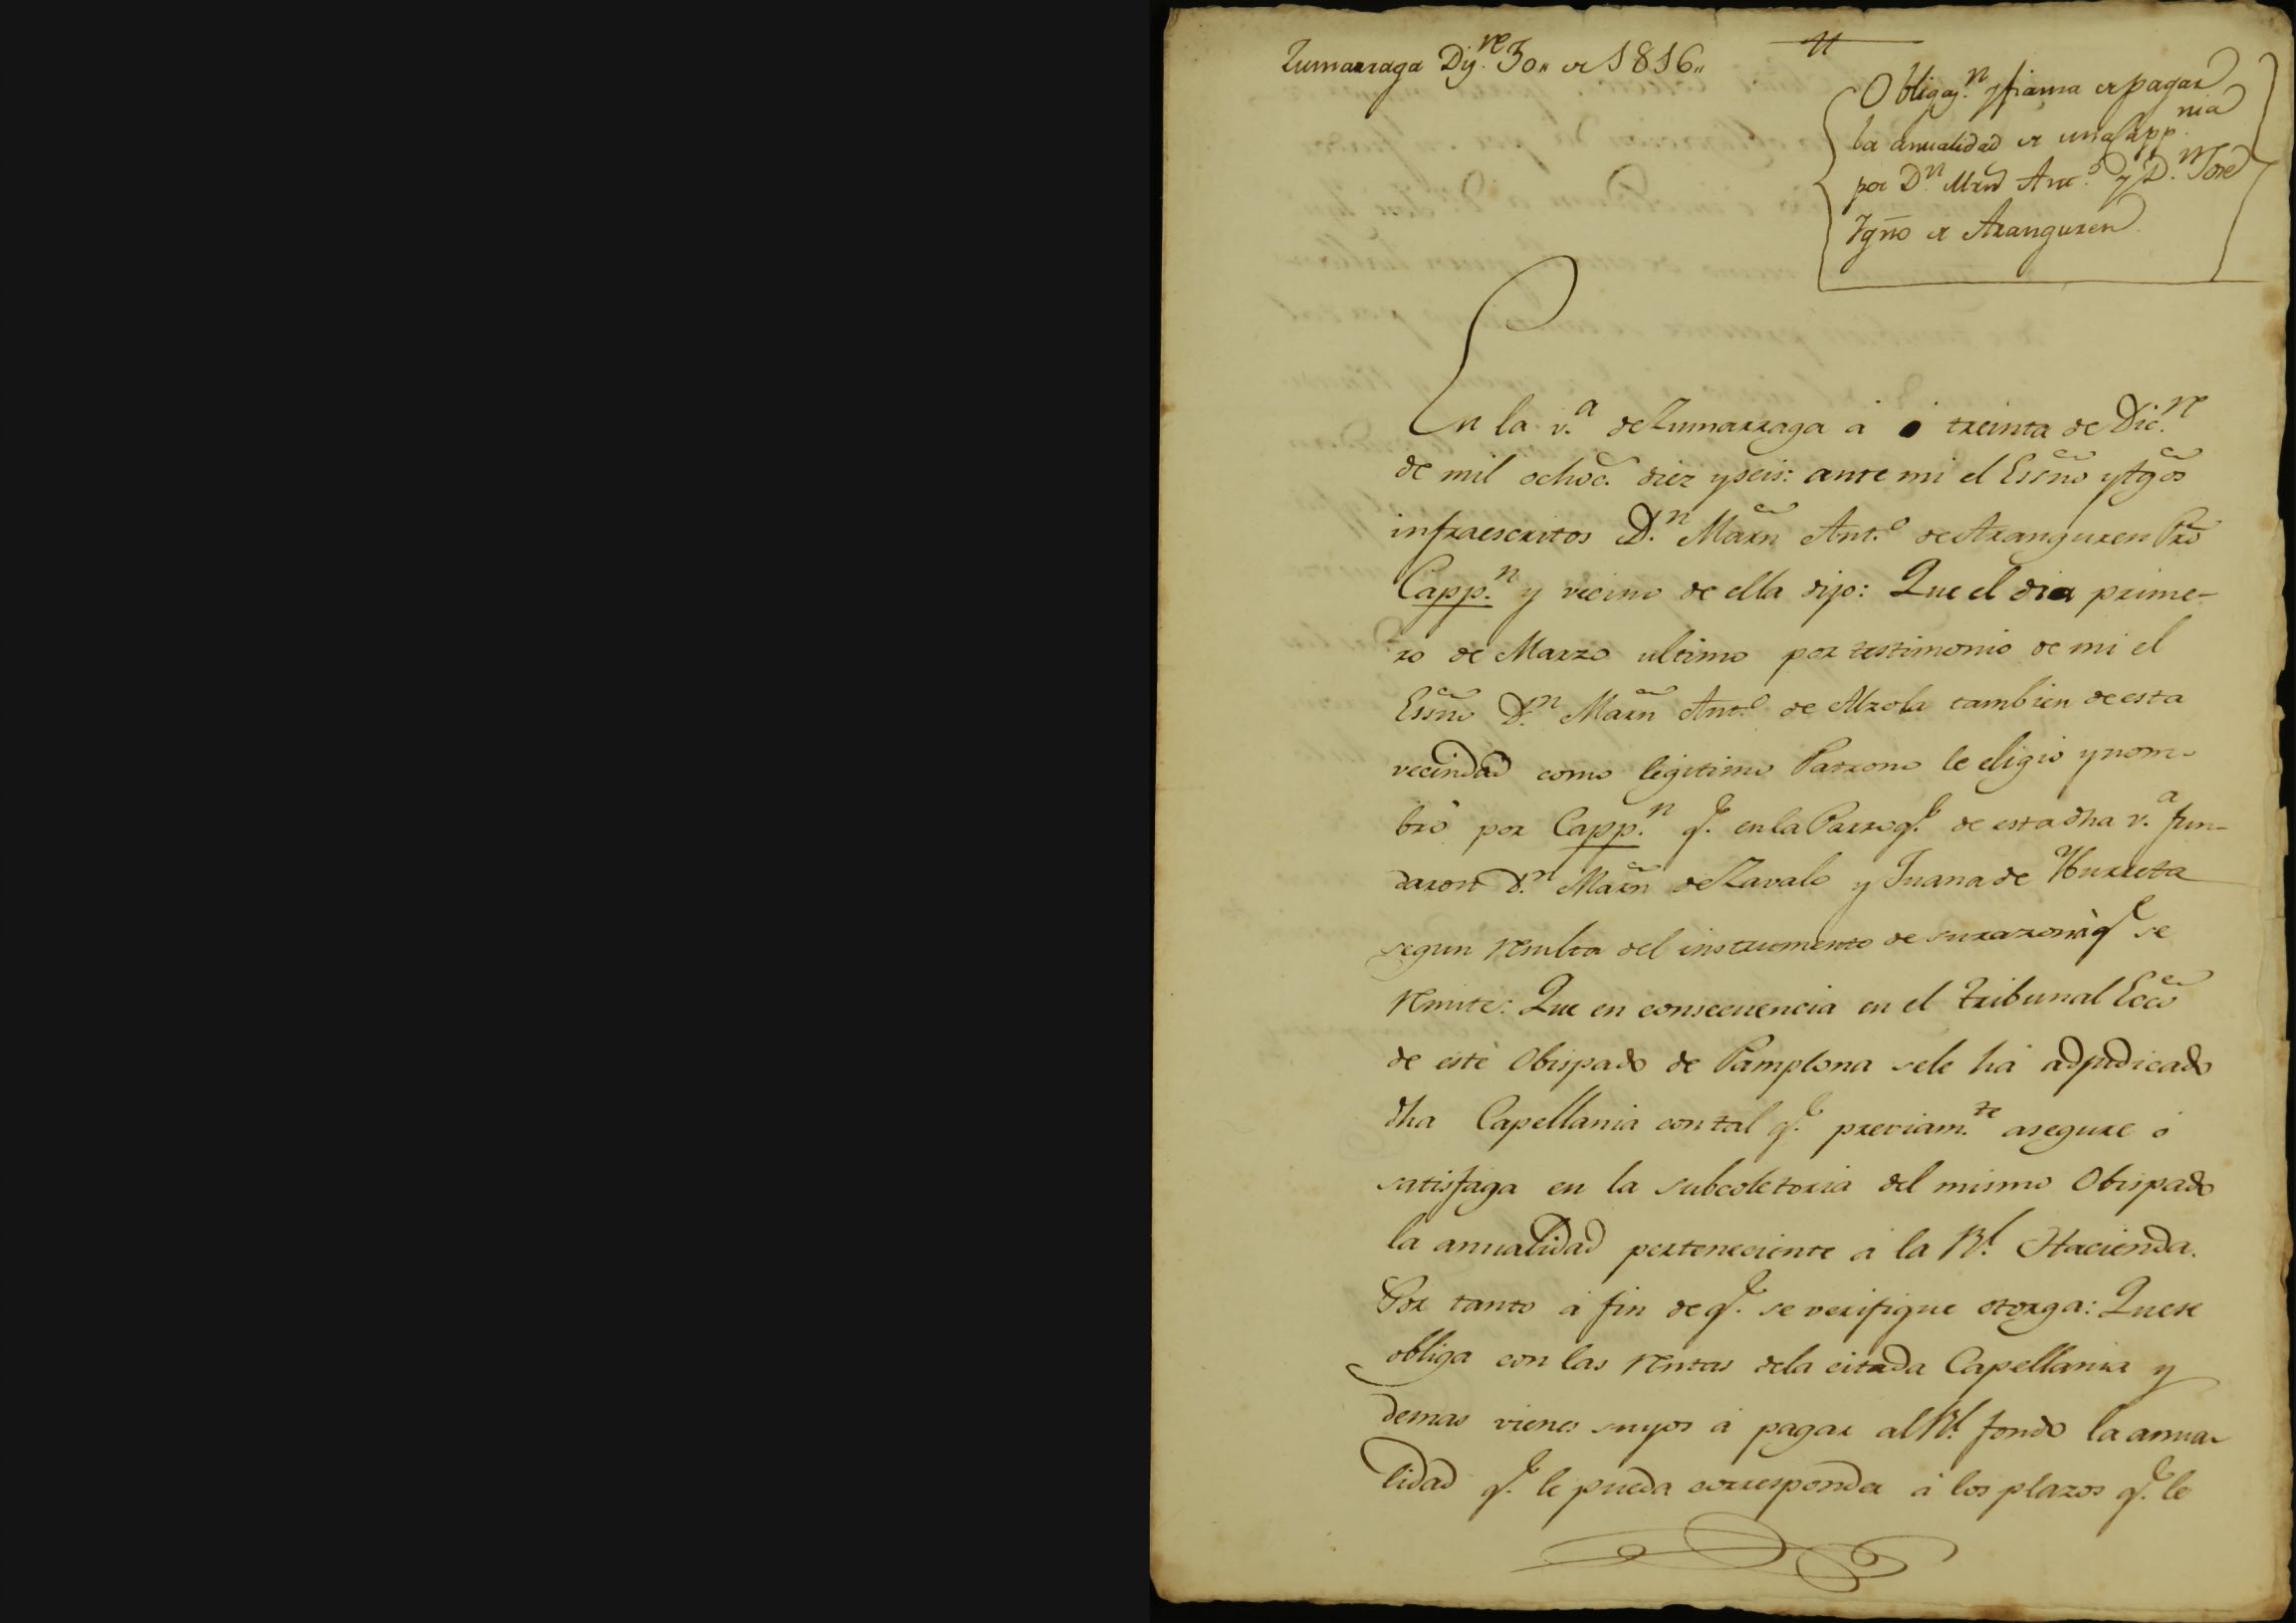 Zumarraga Dij.re 30,, de 1816,,
Obligaz.n y fianza de pagar
la anualidad de una Capp.nia
por D.n Mrn Ant.o y D.n Jose
Ygño de Aranguren
En la v.a de Zumarraga á treinta de Dic.re
de mil ochoc. diez y seis: ante mi el Essño y tgõs
infraescritos D.n Marñ Ant.o de Aranguren Pro
Capp.n y vecino de ella dijo: Que el dia prime-
ro de Marzo ultimo por testimonio de mi el
Essño D.n Marñ Ant.o de Alzola tambien de esta
vecindad como legitimo Patrono le eligio y nom-
bró por Capp.n q.e en la Parroq.l de esta dha v.a fun-
daron D.n Marñ de Zavalo y Juana de Yburreta
segun resulta del instrumento de su razon á q.e se
remite: Que en consecuencia en el tribunal Eccõ
de este Obispado de Pamplona se le há adjudicado
dha Capellania con tal q.e previam.te asegure ó
satisfaga en la subcoletoria del mismo Obispado
la anualidad perteneciente á la R.l Hacienda.
Por tanto á fin de q.e se verifique otorga: Que se
obliga con las rentas de la citada Capellania y
demas vienes suyos á pagar al R.l fondo la anua-
lidad q.e le pueda corresponder á los plazos q.e le